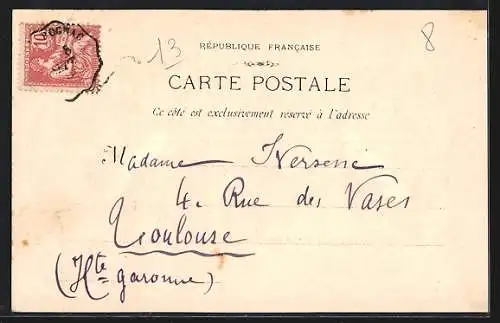 13
8
RÉPUBLIQUE FRANÇAISE
CARTE POSTALE
Ce côté est exclusivement réservé à l'adresse
Madame
4. Rue des Vases
Toulouse
(Hte garonne)